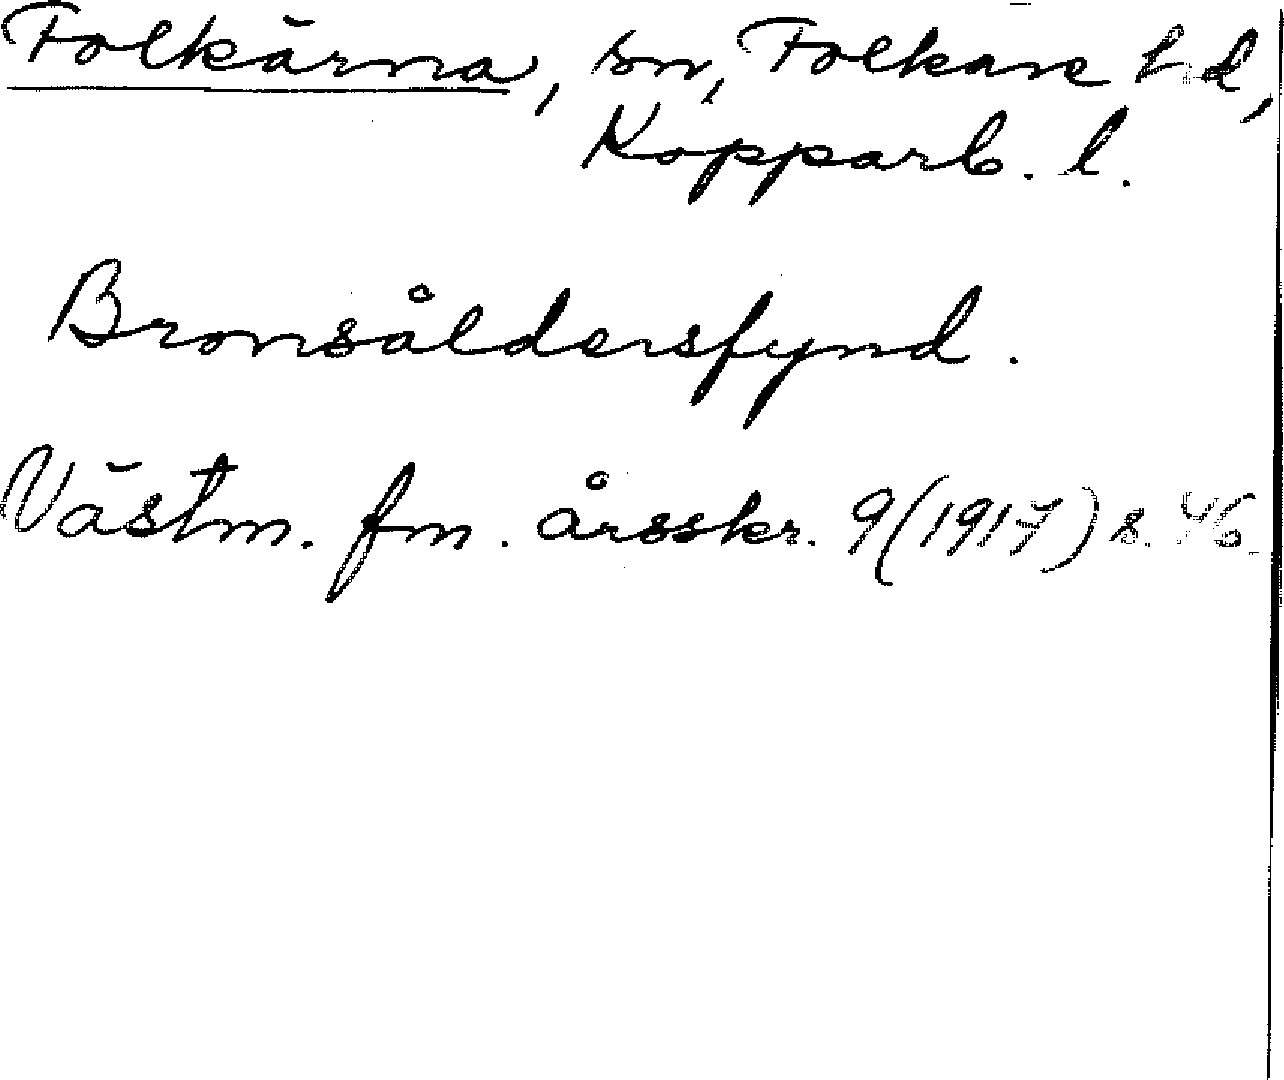 Folkärna, sn, Folkare hd,
Kopparb. l.
Bronsåldersfynd.
Västm. fm. årsskr. 9 (1917) s. 46.